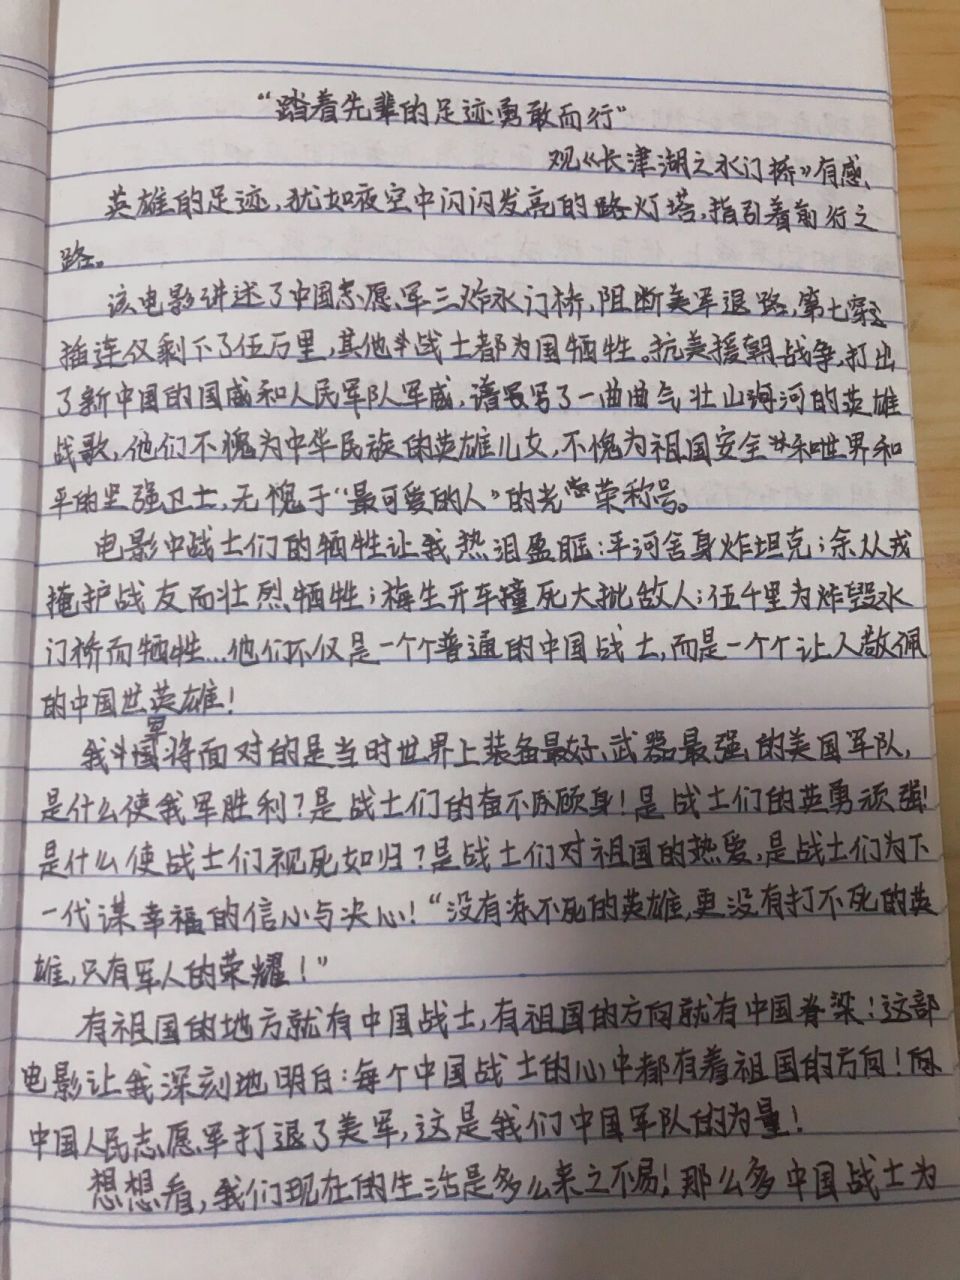 “踏着先辈的足迹勇敢而行”
观《长津湖之水门桥》有感
英雄的足迹，犹如夜空中闪闪发亮的路灯塔，指引着前行之
路。
该电影讲述了中国志愿军三炸水门桥，阻断美军退路，第七穿
插连仅剩下了伍万里，其他战士都为国牺牲。抗美援朝战争，打出
了新中国的国威和人民军队军威，谱写了一曲曲气壮山河的英雄
战歌，他们不愧为中华民族的英雄儿女，不愧为祖国安全和世界和
平的坚强卫士，无愧于“最可爱的人”的光荣称号。
电影中战士们的牺牲让我热泪盈眶：平河舍身炸坦克；余从戎
掩护战友而壮烈牺牲；梅生开车撞死大批敌人；伍千里为炸毁水
门桥而牺牲…他们不仅是一个个普通的中国战士，而是一个个让人敬佩
的中国英雄！
我军将面对的是当时世界上装备最好、武器最强的美国军队，
是什么使我军胜利？是战士们的奋不顾身！是战士们的英勇顽强！
是什么使战士们视死如归？是战士们对祖国的热爱，是战士们为下
一代谋幸福的信心与决心！“没有冻不死的英雄，更没有打不死的英
雄，只有军人的荣耀！”
有祖国的地方就有中国战士，有祖国的方向就有中国脊梁！这部
电影让我深刻地明白：每个中国战士的心中都有着祖国的方向！
中国人民志愿军打退了美军，这是我们中国军队的力量！
想想看，我们现在的生活是多么来之不易！那么多中国战士为